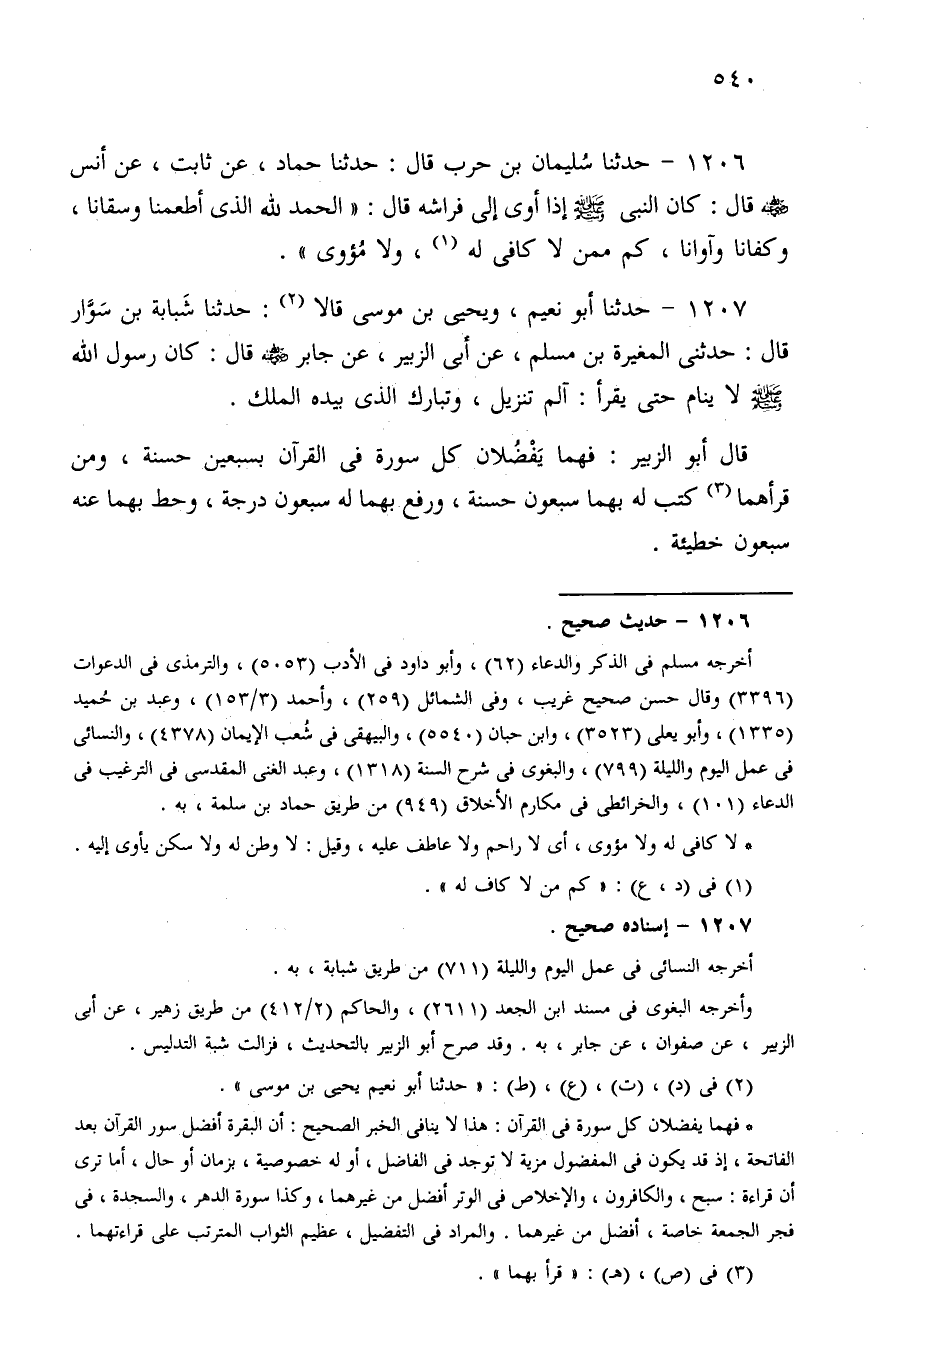 ٥٤٠
١٢٠٦ – حدثنا سُليمان بن حرب قال : حدثنا حماد ، عن ثابت ، عن أنس
رضي الله عنه قال : كان النبى ﷺ إذا أوى إلى فراشه قال : « الحمد لله الذى أطعمنا وسقانا ،
وكفانا وآوانا ، كم ممن لا كافى له (١) ، ولا مُؤوى » .
١٢٠٧ – حدثنا أبو نعيم ، ويحيى بن موسى قالا (٢) : حدثنا شَبابة بن سَوَّار
قال : حدثنى المغيرة بن مسلم ، عن أبى الزبير ، عن جابر رضي الله عنه قال : كان رسول الله
ﷺ لا ينام حتى يقرأ : آلم تنزيل ، وتبارك الذى بيده الملك .
قال أبو الزبير : فهما يَفْضُلان كل سورة فى القرآن بسبعين حسنة ، ومن
قرأهما (٣) كتب له بهما سبعون حسنة ، ورفع بهما له سبعون درجة ، وحط بهما عنه
سبعون خطيئة .
١٢٠٦ – حديث صحيح .
أخرجه مسلم فى الذكر والدعاء (٦٢) ، وأبو داود فى الأدب (٥٠٥٣) ، والترمذى فى الدعوات
(٣٣٩٦) وقال حسن صحيح غريب ، وفى الشمائل (٢٥٩) ، وأحمد (١٥٣/٣) ، وعبد بن حُميد
(١٣٣٥) ، وأبو يعلى (٣٥٢٣) ، وابن حبان (٥٥٤٠) ، والبيهقى فى شُعب الإيمان (٤٣٧٨) ، والنسائى
فى عمل اليوم والليلة (٧٩٩) ، والبغوى فى شرح السنة (١٣١٨) ، وعبد الغنى المقدسى فى الترغيب فى
الدعاء (١٠١) ، والخرائطى فى مكارم الأخلاق (٩٤٩) من طريق حماد بن سلمة ، به .
* لا كافى له ولا مؤوى ، أى لا راحم ولا عاطف عليه ، وقيل : لا وطن له ولا سكن يأوى إليه .
(١) فى (د ، ع) : « كم من لا كاف له » .
١٢٠٧ – إسناده صحيح .
أخرجه النسائى فى عمل اليوم والليلة (٧١١) من طريق شبابة ، به .
وأخرجه البغوى فى مسند ابن الجعد (٢٦١١) ، والحاكم (٤١٢/٢) من طريق زهير ، عن أبى
الزبير ، عن صفوان ، عن جابر ، به . وقد صرح أبو الزبير بالتحديث ، فزالت شبة التدليس .
(٢) فى (د) ، (ت) ، (ع) ، (ط) : « حدثنا أبو نعيم يحيى بن موسى » .
* فهما يفضلان كل سورة فى القرآن : هذا لا ينافى الخبر الصحيح : أن البقرة أفضل سور القرآن بعد
الفاتحة ، إذ قد يكون فى المفضول مزية لا توجد فى الفاضل ، أو له خصوصية ، بزمان أو حال ، أما ترى
أن قراءة : سبح ، والكافرون ، والإخلاص فى الوتر أفضل من غيرهما ، وكذا سورة الدهر ، والسجدة ، فى
فجر الجمعة خاصة ، أفضل من غيرهما . والمراد فى التفضيل ، عظيم الثواب المترتب على قراءتهما .
(٣) فى (ص) ، (هـ) : « قرأ بهما » .